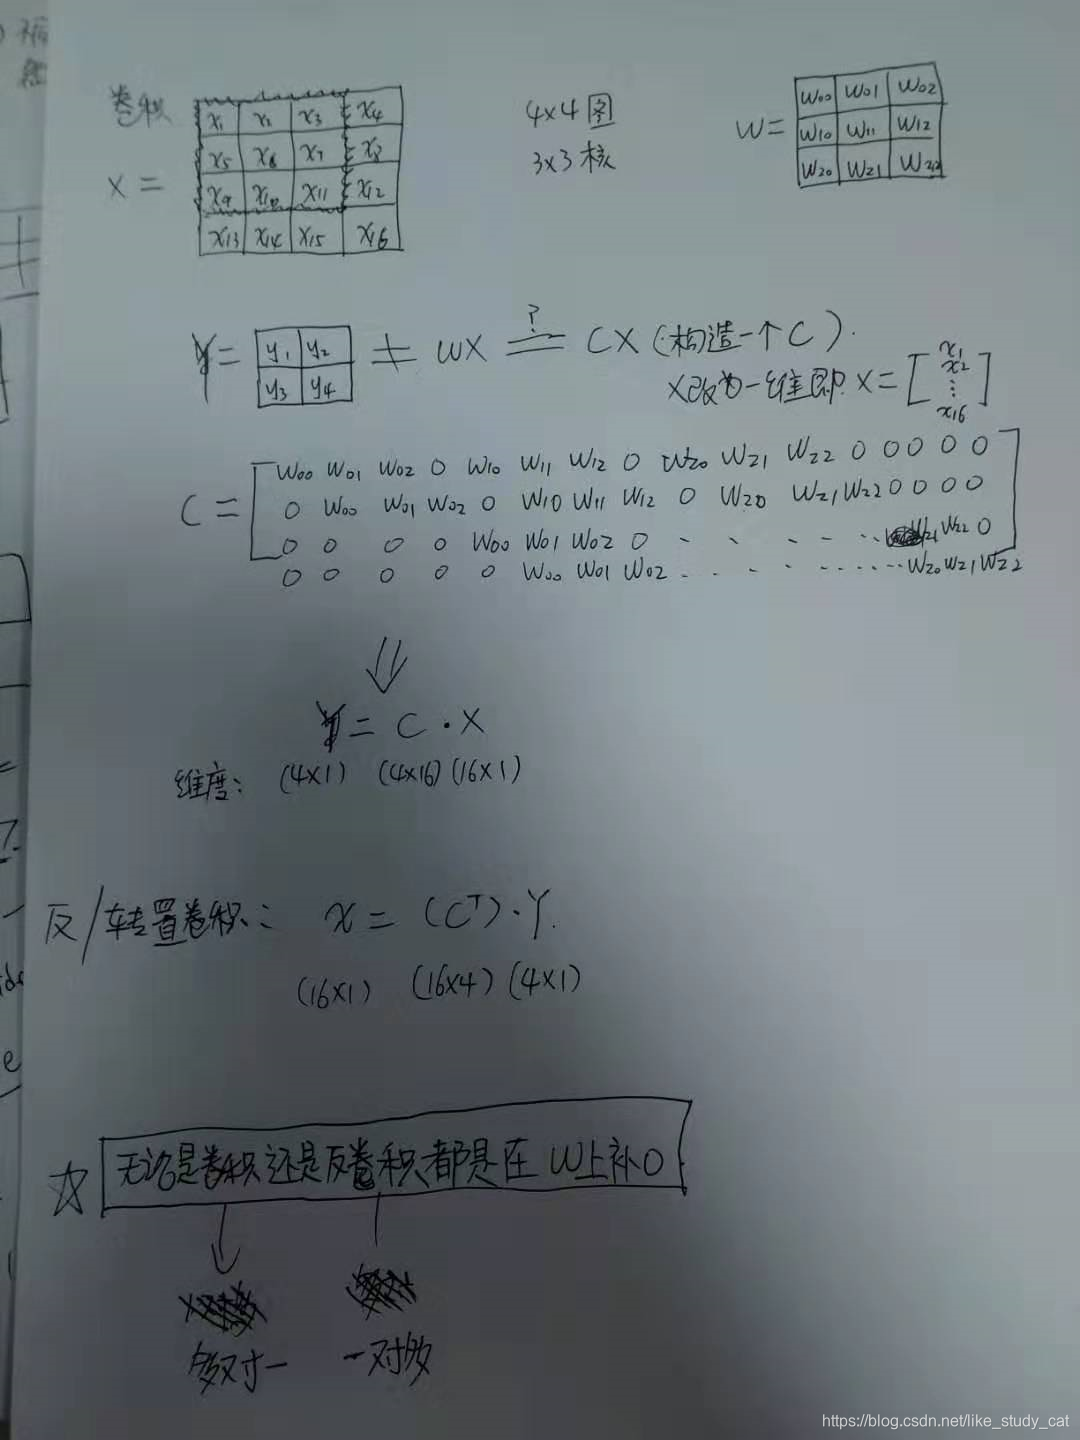 卷积
X =
x1 x2 x3 x4
x5 x6 x7 x8
x9 x10 x11 x12
x13 x14 x15 x16
4×4 图
3×3 核
W =
W00 W01 W02
W10 W11 W12
W20 W21 W22
Y = ≠ WX ?= CX (构造一个C).
y1 y2
y3 y4
X改为一维即 X = [x1 x2 ⋮ x16]
C =
W00 W01 W02 0 W10 W11 W12 0 W20 W21 W22 0 0 0 0 0
0 W00 W01 W02 0 W10 W11 W12 0 W20 W21 W22 0 0 0 0
0 0 0 0 W00 W01 W02 0 - - - - ·· W21 W22 0
0 0 0 0 0 W00 W01 W02 - - - - ······ W20 W21 W22
⇓
Y = C · X
维度: (4×1) (4×16) (16×1)
反/转置卷积: X = (C^T)·Y.
(16×1) (16×4) (4×1)
☆ 无论是卷积还是反卷积都是在 W上补0
多对一 一对多
https://blog.csdn.net/like_study_cat